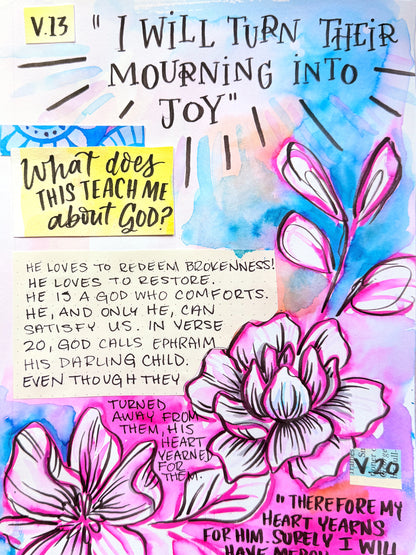 V.13
" I WILL TURN THEIR
MOURNING INTO
JOY"
What does
THIS TEACH ME
about GOD?
HE LOVES TO REDEEM BROKENNESS!
HE LOVES TO RESTORE.
HE IS A GOD WHO COMFORTS.
HE, AND ONLY HE, CAN
SATISFY US. IN VERSE
20, GOD CALLS EPHRAIM
HIS DARLING CHILD.
EVEN THOUGH THEY
TURNED
AWAY FROM
THEM, HIS
HEART
YEARNED
FOR
THEM.
V.20
"THEREFORE MY
HEART YEARNS
FOR HIM. SURELY I WILL
HAVE MERCY